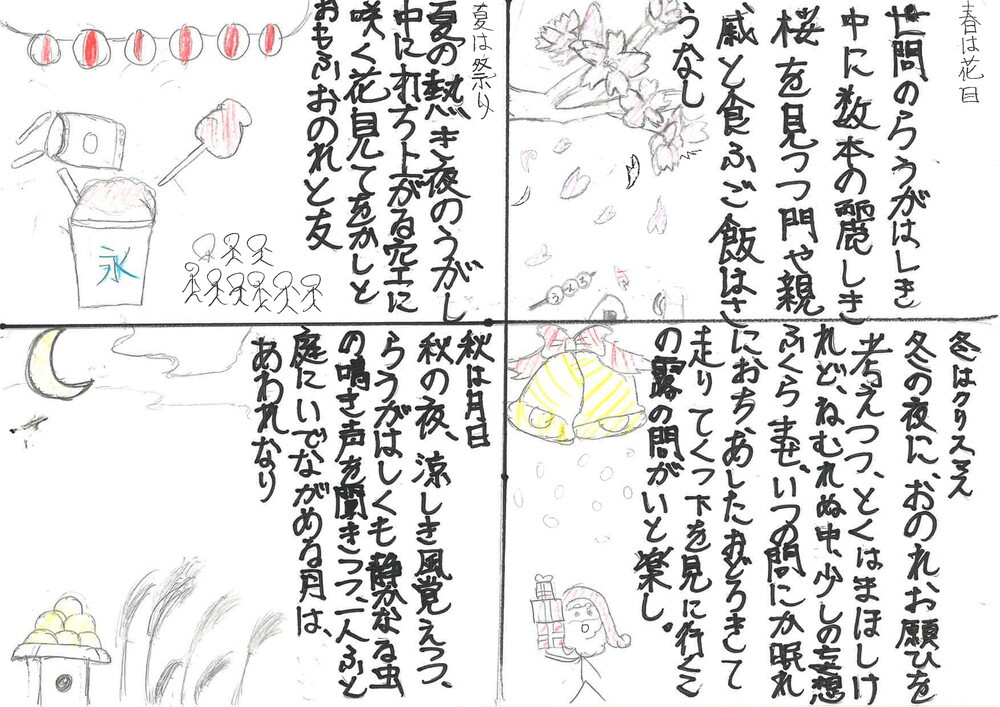 春は花見
世間のらうがはしき
中に数本の麗しき
桜を見つつ門や親
戚と食ふご飯はさ
うなし
夏は祭り
夏の熱き夜のうがし
中にれち上がる空に
咲く花見てをかしと
おもふおのれと友
氷
秋は月日
秋の夜、涼しき風覚えつつ、
らうがはしくも静かなる虫
の鳴き声を聞きつつ、一人ふと
庭にいでながめる月は、
あわれなり
冬はクリスマス
冬の夜に、おのれ、お願ひを
考えつつ、とくはまほしけ
れど、ねむれぬ中、少しの妄想
ふくらませ。いつの間にか眠れ
におち、あしたおどろきして
走りてくつ下を見に行くこ
の露の間がいと楽し。